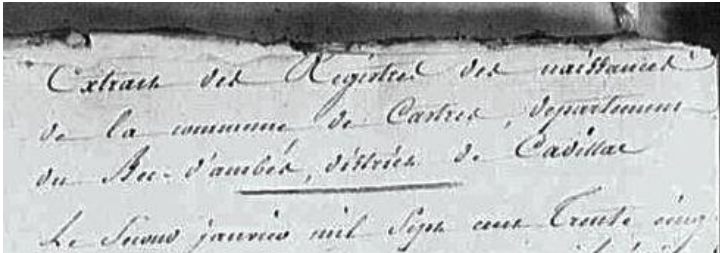 Extrait des Registres des naissances
de la commune de Castres, département
du Bec-d'ambés, district de Cadillac
Le Second janvier mil Sept cent Trente cinq